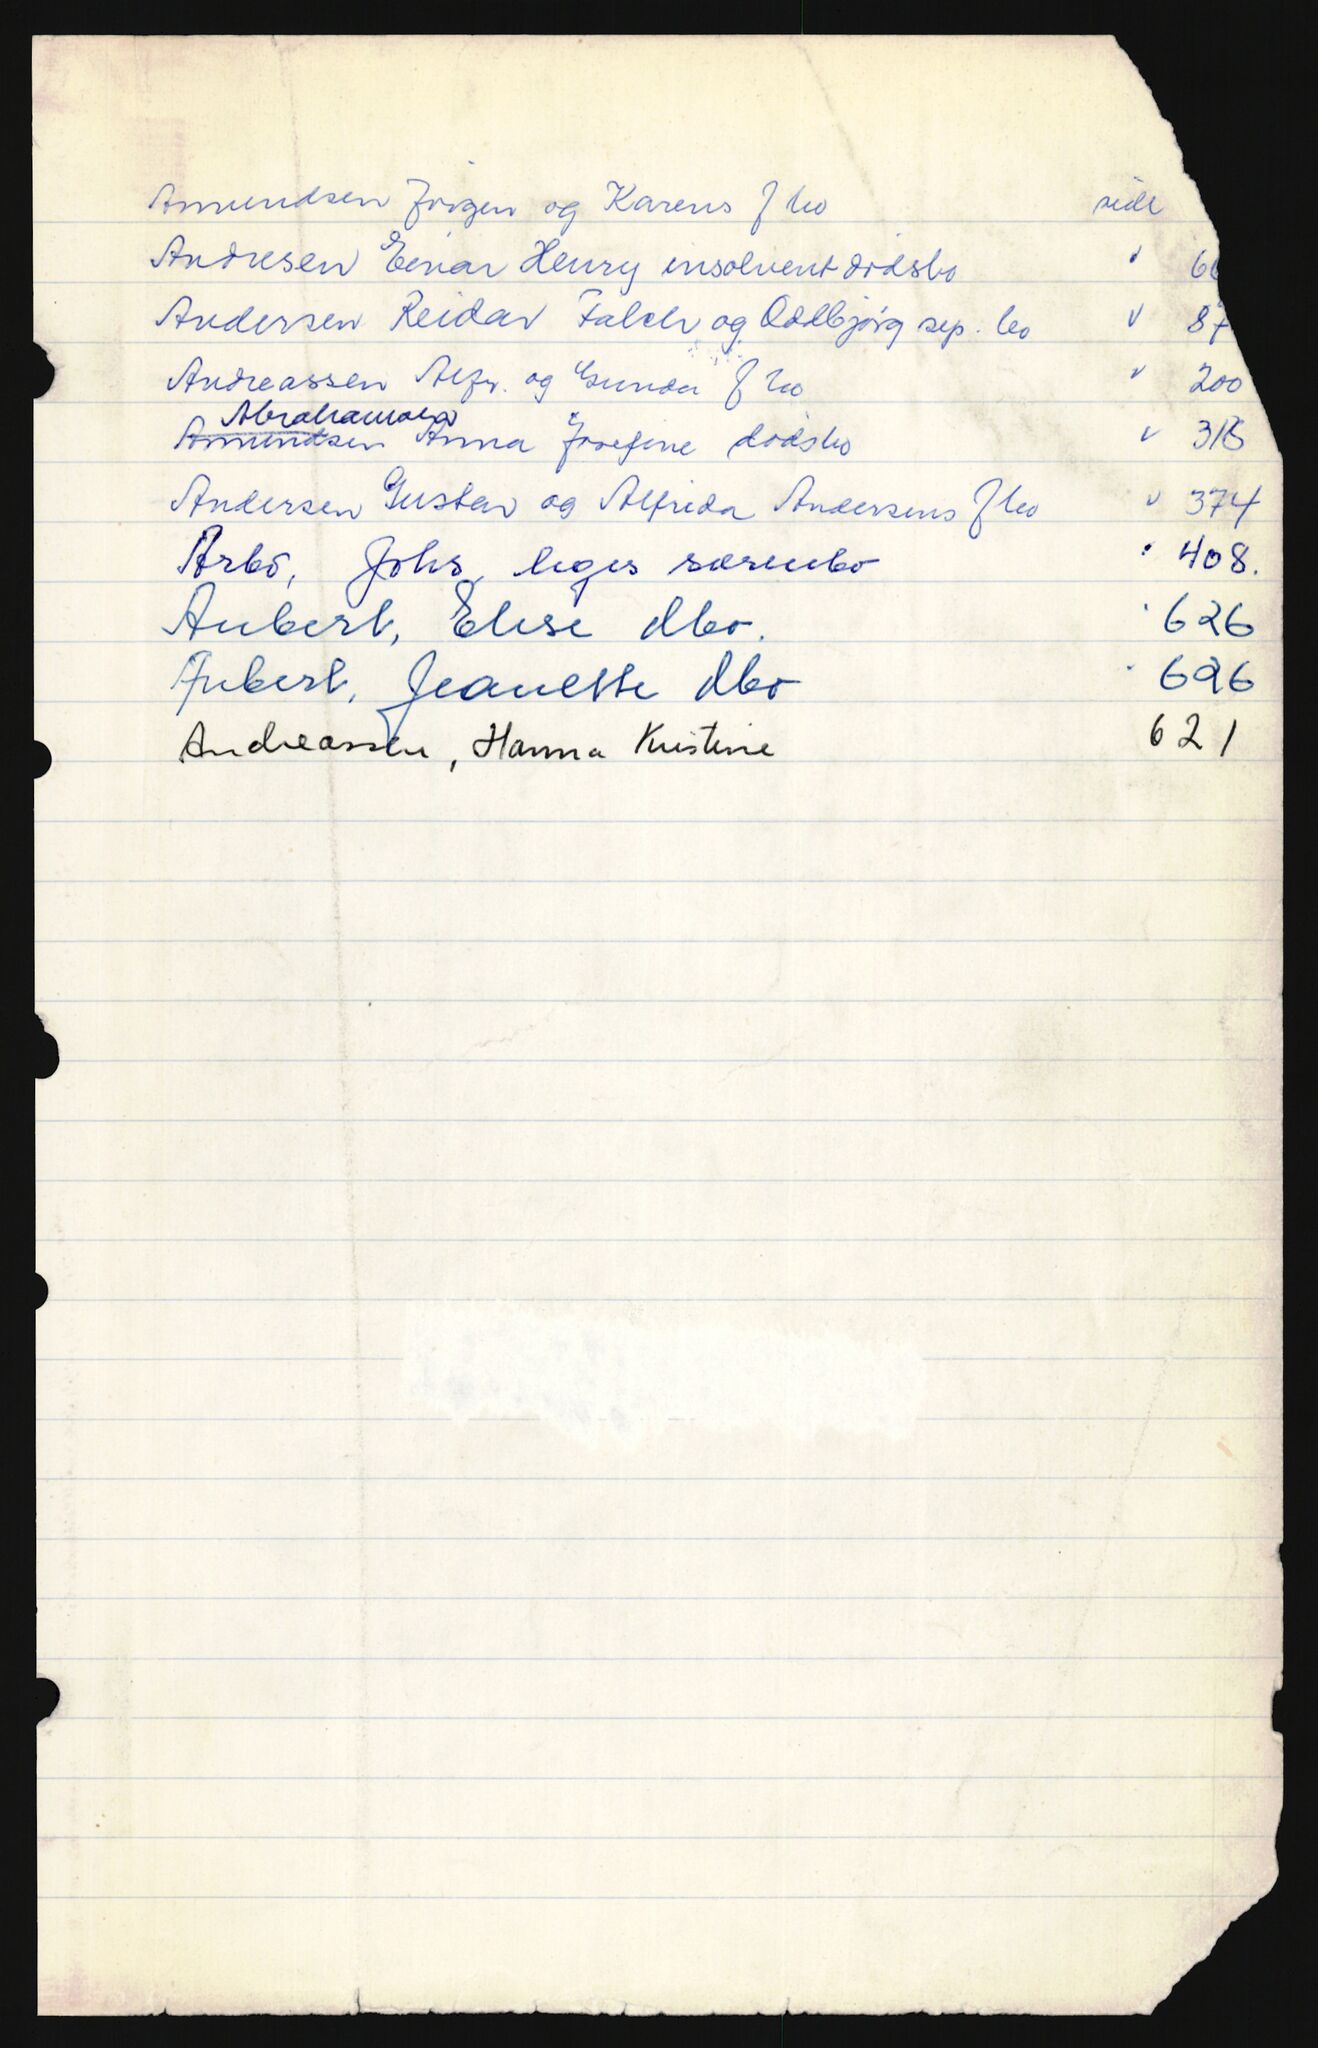 Amundsen Jörgen og Karens f bo side
Andresen Einar Henry insolvent dödsbo " 66
Andersen Reidar Falch og Oddbjörg sep. bo " 87
Andreassen Alfr. og Gunda f bo " 200
Abrahamsen
Amundsen Anna Josefine dödsbo " 318
Andersen Gustav og Alfrida Andersens f bo " 374
Arbö, Johs, leges særeiebo " 408.
Aubert, Elise dbo. " 626
Aubert, Jeanette dbo " 626
Andreassen, Hanna Kristine 621